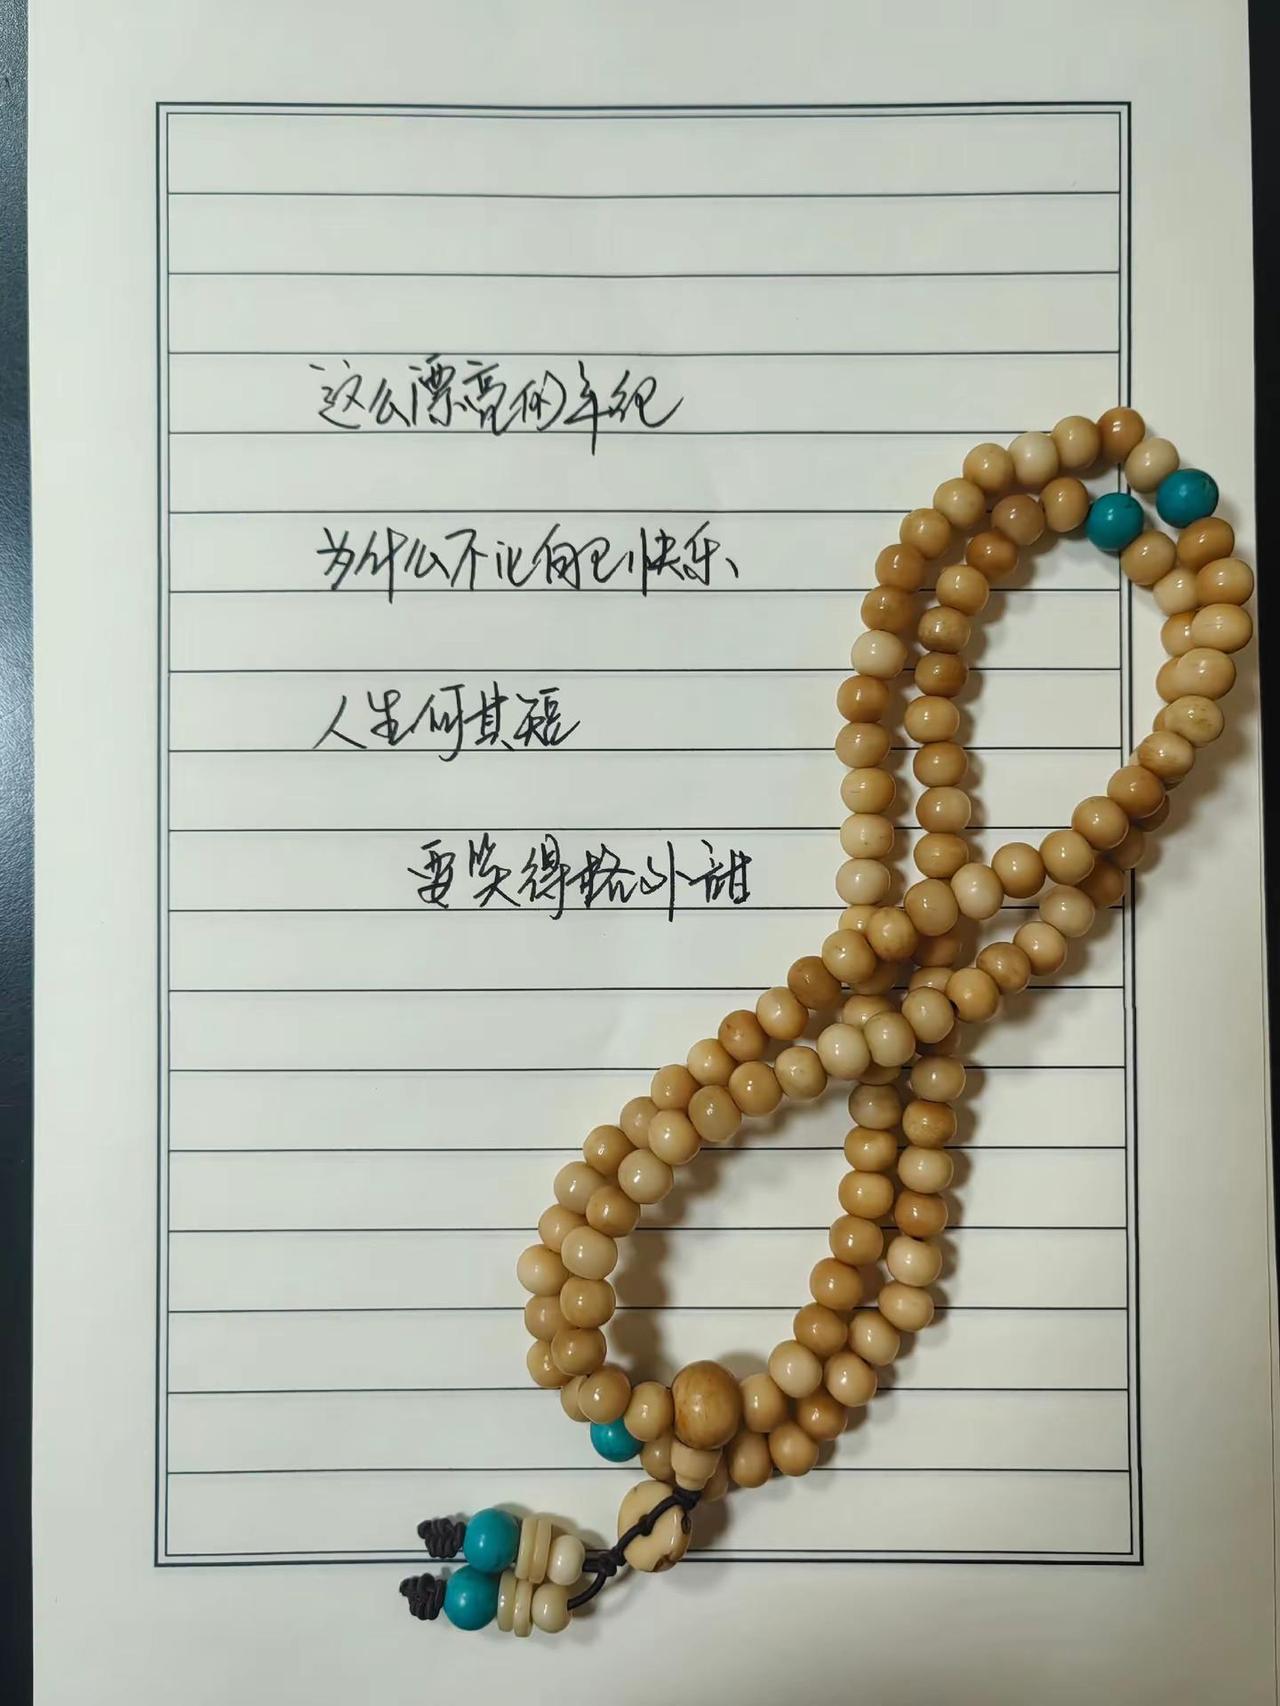 这么漂亮的年纪
为什么不让自己快乐、
人生何其短
要笑得格外甜